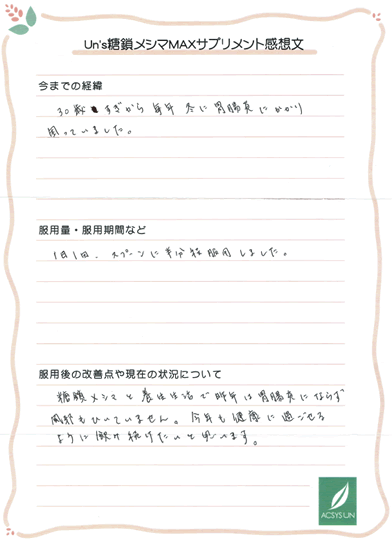 Un's糖鎖メシマMAXサプリメント感想文
今までの経緯
30歳すぎから毎年冬に胃腸炎にかかり
困っていました。
服用量・服用期間など
1日1回、スプーンに半分程服用しました。
服用後の改善点や現在の状況について
糖鎖メシマと養生生活で昨年は胃腸炎にならず
風邪もひいていません。今年も健康に過ごせる
ように飲み続けたいと思います。
ACSYS UN